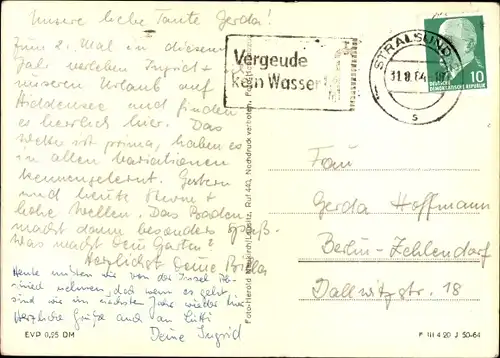 Unsere liebe Tante Gerda!
Zum 2. Mal in diesem
Jahr verleben Ingrid +
unseren Urlaub auf
Hiddensee und finden
es herrlich hier. Das
Wetter ist prima, haben es
in allen Variationen
kennengelernt. Gestern
und heute Sturm +
hohe Wellen. Das Baden
macht dann besonders Spaß.
Was macht Dein Garten?
Herzlichst Deine
Heute müssen wir von der Insel Ab-
schied nehmen, doch wenn es geht
sind wir im nächsten Jahr wieder hier.
Herzliche Grüße auch an
Deine Ingrid
EVP 0,25 DM
Foto-Herold Ruf 440, Nachdruck verboten.
Vergeude
kein Wasser!
STRALSUND
11.8.64
s
10
DEUTSCHE
DEMOKRATISCHE REPUBLIK
Frau
Gerda Hoffmann
Berlin-Zehlendorf
Dallwitzstr. 18
F III 4 20 J 50-64